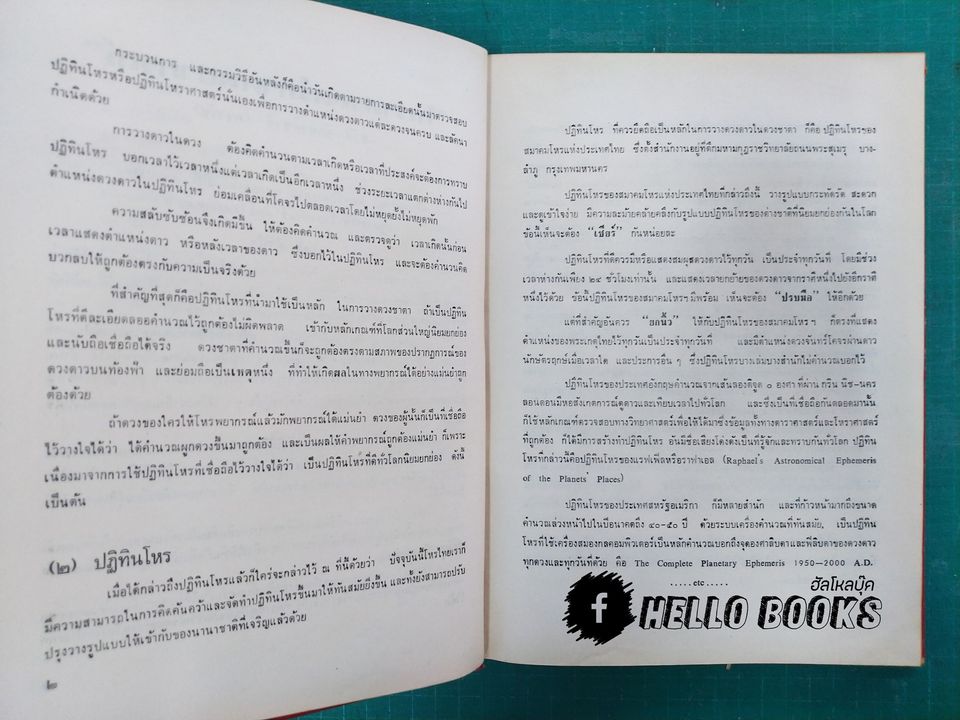 กระบวนการ และกรรมวิธีอันหลังก็คือนำวันเกิดตามรายการละเอียดนั้นมาตรวจสอบ
ปฏิทินโหรหรือปฏิทินโหราศาสตร์นั่นเองเพื่อการวางตำแหน่งดวงดาวแต่ละดวงจนครบ และลัคนา
กำเนิดด้วย
การวางดาวในดวง ต้องคิดคำนวณตามเวลาเกิดหรือเวลาที่ประสงค์จะต้องการทราบ
ปฏิทินโหร บอกเวลาไว้เวลาหนึ่งแต่เวลาเกิดเป็นอีกเวลาหนึ่ง ช่วงระยะเวลาแตกต่างห่างกันไป
ตำแหน่งดวงดาวในปฏิทินโหร ย่อมเคลื่อนที่โคจรไปตลอดเวลาโดยไม่หยุดยั้งไม่หยุดพัก
ความสลับซับซ้อนจึงเกิดมีขึ้น ให้ต้องคิดคำนวณ และตรวจดูว่า เวลาเกิดนั้นก่อน
เวลาแสดงตำแหน่งดาว หรือหลังเวลาของดาว ซึ่งบอกไว้ในปฏิทินโหร และจะต้องคำนวนคิด
บวกลบให้ถูกต้องตรงกับความเป็นจริงด้วย
ที่สำคัญที่สุดก็คือปฏิทินโหรที่นำมาใช้เป็นหลัก ในการวางดวงชาตา ถ้าเป็นปฏิทิน
โหรที่ดีละเอียดตลอดคำนวณไว้ถูกต้องไม่ผิดพลาด เข้ากับหลักเกณฑ์ที่โลกส่วนใหญ่นิยมยกย่อง
และนับถือเชื่อถือได้จริง ดวงชาตาที่คำนวณขึ้นก็จะถูกต้องตรงตามสภาพของปรากฏการณ์ของ
ดวงดาวบนท้องฟ้า และย่อมถือเป็นเหตุหนึ่ง ที่ทำให้เกิดผลในทางพยากรณ์ได้อย่างแม่นยำถูก
ต้องด้วย
ถ้าดวงของใครให้โหรพยากรณ์แล้วมักพยากรณ์ได้แม่นยำ ดวงของผู้นั้นก็เป็นที่เชื่อถือ
ไว้วางใจได้ว่า ได้คำนวณผูกดวงขึ้นมาถูกต้อง และเป็นผลให้คำพยากรณ์ถูกต้องแม่นยำ ก็เพราะ
เนื่องมาจากการใช้ปฏิทินโหรที่เชื่อถือไว้วางใจได้ว่า เป็นปฏิทินโหรที่ดีทั่วโลกนิยมยกย่อง ดังนี้
เป็นต้น
(๒) ปฏิทินโหร
เมื่อได้กล่าวถึงปฏิทินโหรแล้วก็ใคร่จะกล่าวไว้ ณ ที่นี้ด้วยว่า ปัจจุบันนี้โหรไทยเราก็
มีความสามารถในการคิดค้นคว้าและจัดทำปฏิทินโหรขึ้นมาให้ทันสมัยยิ่งขึ้น และทั้งยังสามารถปรับ
ปรุงวางรูปแบบให้เข้ากับของนานาชาติที่เจริญแล้วด้วย
๒
ปฏิทินโหร ที่ควรยึดถือเป็นหลักในการวางดวงดาวในดวงชาตา ก็คือ ปฏิทินโหรของ
สมาคมโหรแห่งประเทศไทย ซึ่งตั้งสำนักงานอยู่ที่ตึกมหามกุฏราชวิทยาลัยถนนพระสุเมรุ บาง-
ลำภู กรุงเทพมหานคร
ปฏิทินโหรของสมาคมโหรแห่งประเทศไทยที่กล่าวถึงนี้ วางรูปแบบกระทัดรัด สะดวก
และดูเข้าใจง่าย มีความละม้ายคล้ายคลึงกับรูปแบบปฏิทินโหรของต่างชาติที่นิยมยกย่องกันในโลก
ข้อนี้เห็นจะต้อง “เชียร์” กันหน่อยละ
ปฏิทินโหรที่ดีควรมีหรือแสดงสมผุสดวงดาวไว้ทุกวัน เป็นประจำทุกวันที่ โดยมีช่วง
เวลาห่างกันเพียง ๒๔ ชั่วโมงเท่านั้น และแสดงเวลายกย้ายของดวงดาวจากราศีหนึ่งไปยังอีกราศี
หนึ่งไว้ด้วย ข้อนี้ปฏิทินโหรของสมาคมโหรฯ มีพร้อม เห็นจะต้อง “ปรบมือ” ให้อีกด้วย
แต่ที่สำคัญอันควร “ยกนิ้ว” ให้กับปฏิทินโหรของสมาคมโหร ฯ ก็ตรงที่แสดง
ตำแหน่งของพระเกตุไทยไว้ทุกวันเป็นประจำทุกวันที่ และมีตำแหน่งดวงจันทร์โคจรผ่านดาว
นักษัตรฤกษ์เมื่อเวลาใด และประการอื่น ๆ ซึ่งปฏิทินโหรบางเล่มบางสำนักไม่คำนวณบอกไว้
ปฏิทินโหรของประเทศอังกฤษคำนวณจากเส้นลองติจูด ๐ องศาที่ผ่าน กรีน นิช-นคร
ลอนดอนมีหอสังเกตการณ์ดูดาวและเทียบเวลาไปทั่วโลก และซึ่งเป็นที่เชื่อถือกันตลอดมานั้น
ก็ใช้หลักเกณฑ์ตรวจสอบทางวิทยาศาสตร์เพื่อให้ได้มาซึ่งข้อมูลทั้งทางดาราศาสตร์และโหราศาสตร์
ที่ถูกต้อง ก็ได้มีการสร้างทำปฏิทินโหร อันมีชื่อเสียงโด่งดังเป็นที่รู้จักและทราบกันทั่วโลก ปฏิทิน
โหรที่กล่าวนี้คือปฏิทินโหรของแรฟเฟิลหรือราฟาเอล (Raphael's Astronomical Ephemeris
of the Planets' Places)
ปฏิทินโหรของประเทศสหรัฐอเมริกา ก็มีหลายสำนัก และที่ก้าวหน้ามากถึงขนาด
คำนวณล่วงหน้าไปในปีอนาคตถึง ๔๐-๕๐ ปี ด้วยระบบเครื่องคำนวณที่ทันสมัย, เป็นปฏิทิน
โหรที่ใช้เครื่องสมองกลคอมพิวเตอร์เป็นหลักคำนวณบอกถึงจุดองศาลิบดาและพิลิบดาของดวงดาว
ทุกดวงและทุกวันที่ด้วย คือ The Complete Planetary Ephemeris 1950—2000 A.D.
.....etc.....
ฮัลโหลบุ๊ค
f HELLO BOOKS